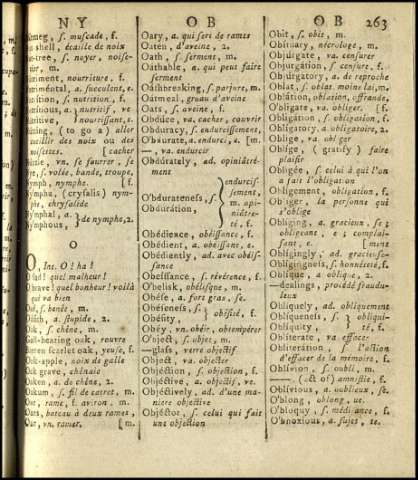 NY
OB
OB 263
Nutmeg, ſ. muſcade, f.
shell, écaille de noix
tree, ſ. noyer, noiſe-
tier, m.
Nutriment, nourriture, f.
Nutrimental, a. ſucculent, e.
Nutrition, ſ. nutrition, f.
Nutritious, a. nutritif, ve
Nutritive, nourriſſant, e.
Nutting, (to go a) aller
cueillir des noix ou des
noiſettes. [cacher
vn. ſe fourrer, ſe
ſ. volée, bande, troupe,
Nymph, nymphe. [f.
Nympha, (cryſalis) nym-
phe, chryſalide
Nymphal, a. de nymphe, 2.
Nymphous,
O
O, Int. O! ha!
O ſad! quel malheur!
O brave! quel bonheur! voilà
qui va bien
Oaf, ſ. benêt, m.
Oafiſh, a. ſtupide, 2.
Oak, ſ. chêne, m.
Gall-bearing oak, rouvre
Barren ſcarlet oak, yeuſe, f.
Oak-apple, noix de galle
Oak grave, chênaie
Oaken, a. de chêne, 2.
Oakum, ſ. fil de carret, m.
Oar, rame, f. aviron, m.
Oars, bateau à deux rames,
Oar, vn. ramer. [m.
Oary, a. qui ſert de rames
Oaten, d'aveine, 2.
Oath, ſ. ſerment, m.
Oathable, a. qui peut faire
ſerment
Oathbreaking, ſ. parjure, m.
Oatmeal, gruau d'aveine
Oats, ſ. aveine, f.
Obdúce, va. cacher, couvrir
Obduracy, ſ. endurciſſement,
O'bdurate, a. endurci, e. [m.
—, va. endurcir
Obdúrately, ad. opiniâtré-
ment
Obdurateneſs, ſ. endurciſ-
Obdurátion, ſement,
m. opi-
niâtre-
té, f.
Obédience, obéiſſance, f.
Obédient, a. obéiſſant, e.
Obédiently, ad. avec obéiſ-
ſance
Obeiſſance, ſ. révérence, f.
O'beliſk, obéliſque, m.
Obéſe, a. fort gras, ſe.
Obéſeneſs, ſ. obéſité, f.
Obéſity,
Obéy, vn. obéir, obtempérer
O'bject, ſ. objet, m.
—glaſs, verre objectif
Object, va. objecter
Objéction, ſ. objection, f.
Objéctive, a. objectif, ve.
Objéctively, ad. d'une ma-
niere objective
Objéctor, ſ. celui qui fait
une objection
Obit, ſ. obit, m.
Obituary, nécrologe, m.
Objúrgate, va. cenſurer
Objurgátion, ſ. cenſure, f.
Objúrgatory, a. de reproche
Oblat, ſ. oblat, moine lai, m.
Oblátion, oblation, offrande,
O'bligate, va. obliger. [f.
Obligátion, ſ. obligation, f.
O'bligatory, a. obligatoire, 2.
Oblíge, va. obliger
Oblige, (gratify) faire
plaiſir
Obligée, ſ. celui à qui l'on
a fait l'obligation
Obligement, obligation, f.
Obliger, la perſonne qui
s'oblige
Obliging, a. gracieux, ſe;
obligeant, e; complai-
ſant, e. [ment
Obligingly, ad. gracieuſe-
Obligingneſs, ſ. honnêteté, f.
Oblique, a. oblique, 2.
—dealings, procédé fraudu-
leux
Obliquely, ad. obliquement
Obliqueneſs, ſ. obliqui-
Oblíquity, té, f.
Oblíterate, va. effacer
Obliterátion, ſ. l'action
d'effacer de la mémoire, f.
Oblivion, ſ. oubli, m.
—. (act of) amniſtie, f.
Oblivious, a. oublieux, ſe.
O'blong, oblong, ue.
O'bloquy, ſ. médiſance, f.
O'bnoxious, a. ſujet, te.